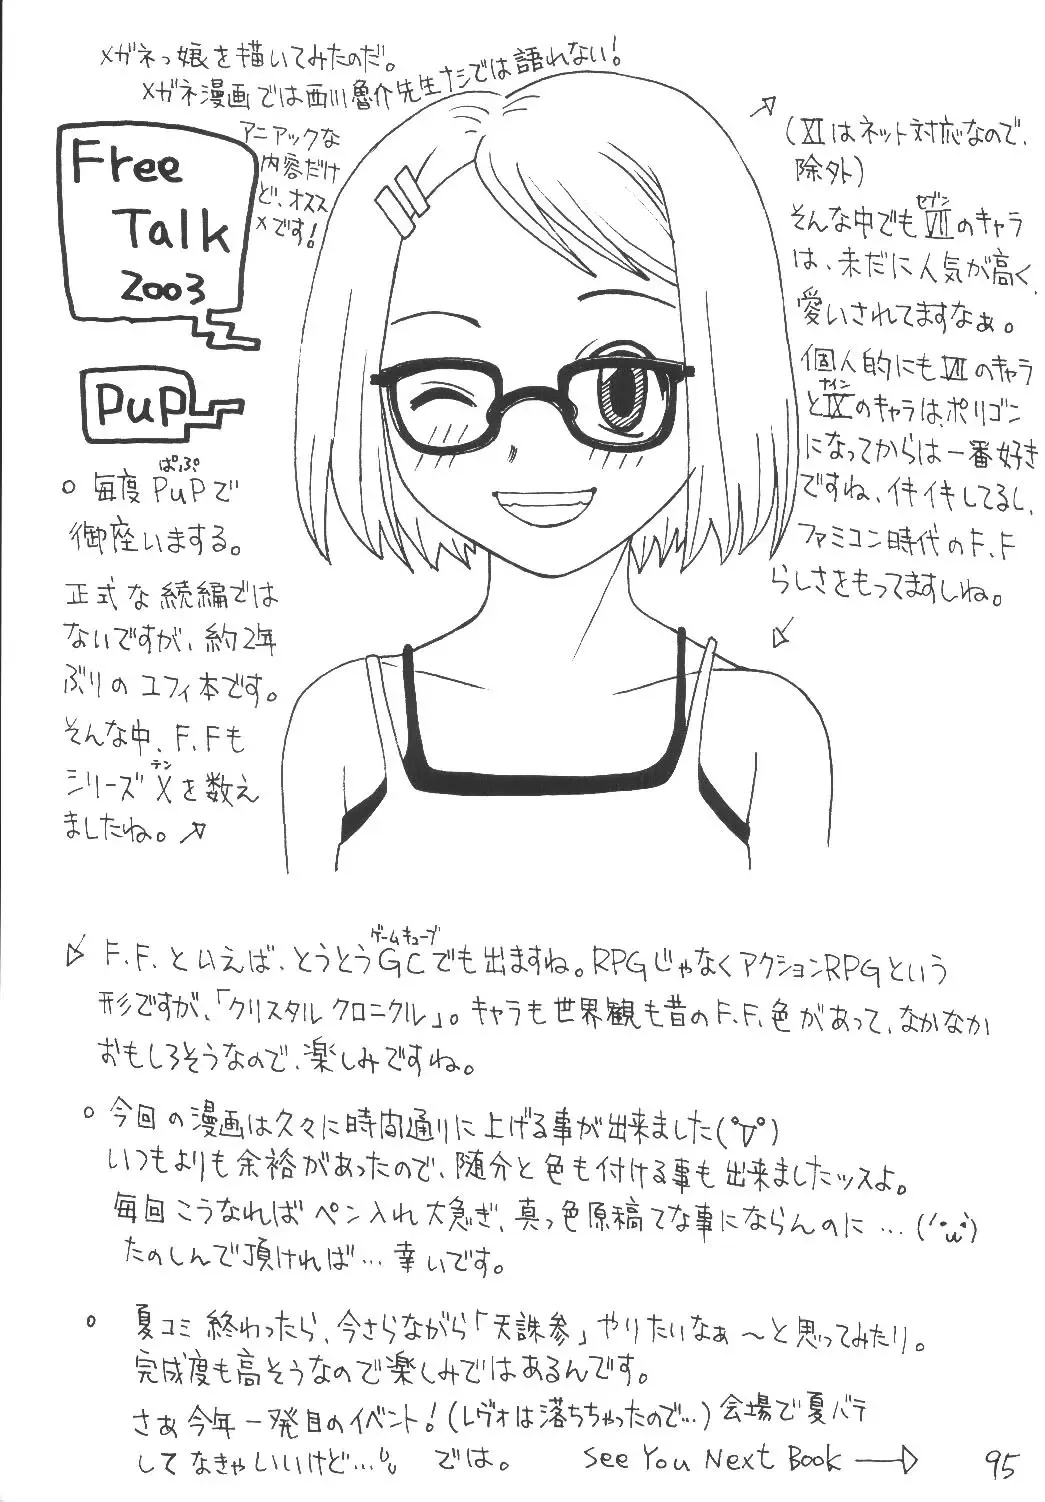 メガネっ娘を描いてみたのだ。
メガネ漫画では西川魯介先生ナシでは語れない!
アニアックな
内容だけ
ど、オスス
メです!
Free
Talk
2003
PuP
ぱぷ
○ 毎度 PuPで
御座いまする。
正式な続編では
ないですが、約2年
ぶりのユフィ本です。
そんな中、F.Fも
テン
シリーズXを数え
ましたね。↗
↗
(XIはネット対応なので、
除外)
セブン
そんな中でもVIIのキャラ
は、未だに人気が高く、
愛いされてますなぁ。
個人的にもVIIのキャラ
ナイン
とIXのキャラは、ポリゴン
になってからは一番好き
ですね、イキイキしてるし、
ファミコン時代のF.F
らしさをもってますしね。
↙
ゲームキューブ
↘ F.F.といえば、とうとうGCでも出ますね。RPGじゃなくアクションRPGという
形ですが、「クリスタルクロニクル」。キャラも世界観も昔のF.F.色があって、なかなか
おもしろそうなので、楽しみですね。
○ 今回の漫画は久々に時間通りに上げる事が出来ました(°▽°)
いつもよりも余裕があったので、随分と色も付ける事も出来ましたッスよ。
毎回こうなればペン入れ大急ぎ、真っ色原稿てな事にならんのに…('・ω・`)
たのしんで頂ければ…幸いです。
○ 夏コミ終わったら、今さらながら「天誅参」やりたいなぁ〜と思ってみたり。
完成度も高そうなので楽しみではあるんです。
さぁ今年一発目のイベント!(レヴォは落ちちゃったので…)会場で夏バテ
してなきゃいいけど… では。 See You Next Book →
95